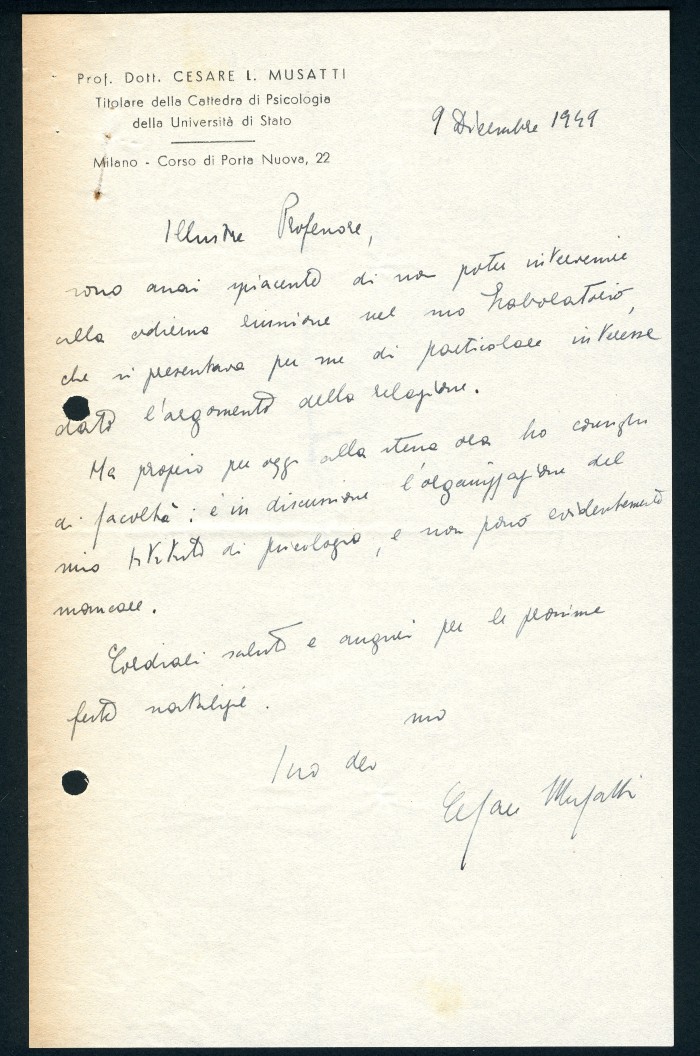 Prof. Dott. CESARE L. MUSATTI
Titolare della Cattedra di Psicologia
della Università di Stato
Milano - Corso di Porta Nuova, 22
9 Dicembre 1949
Illustre Professore,
sono assai spiacente di non poter intervenire
alla odierna riunione nel suo Laboratorio,
che si presentava per me di particolare interesse
dato l'argomento della relazione.
Ma proprio per oggi alla stessa ora ho consiglio
di facoltà: è in discussione l'organizzazione del
mio Istituto di psicologia, e non posso evidentemente
mancare.
Cordiali saluti e auguri per le prossime
feste natalizie.
suo dev mo
Cesare Musatti